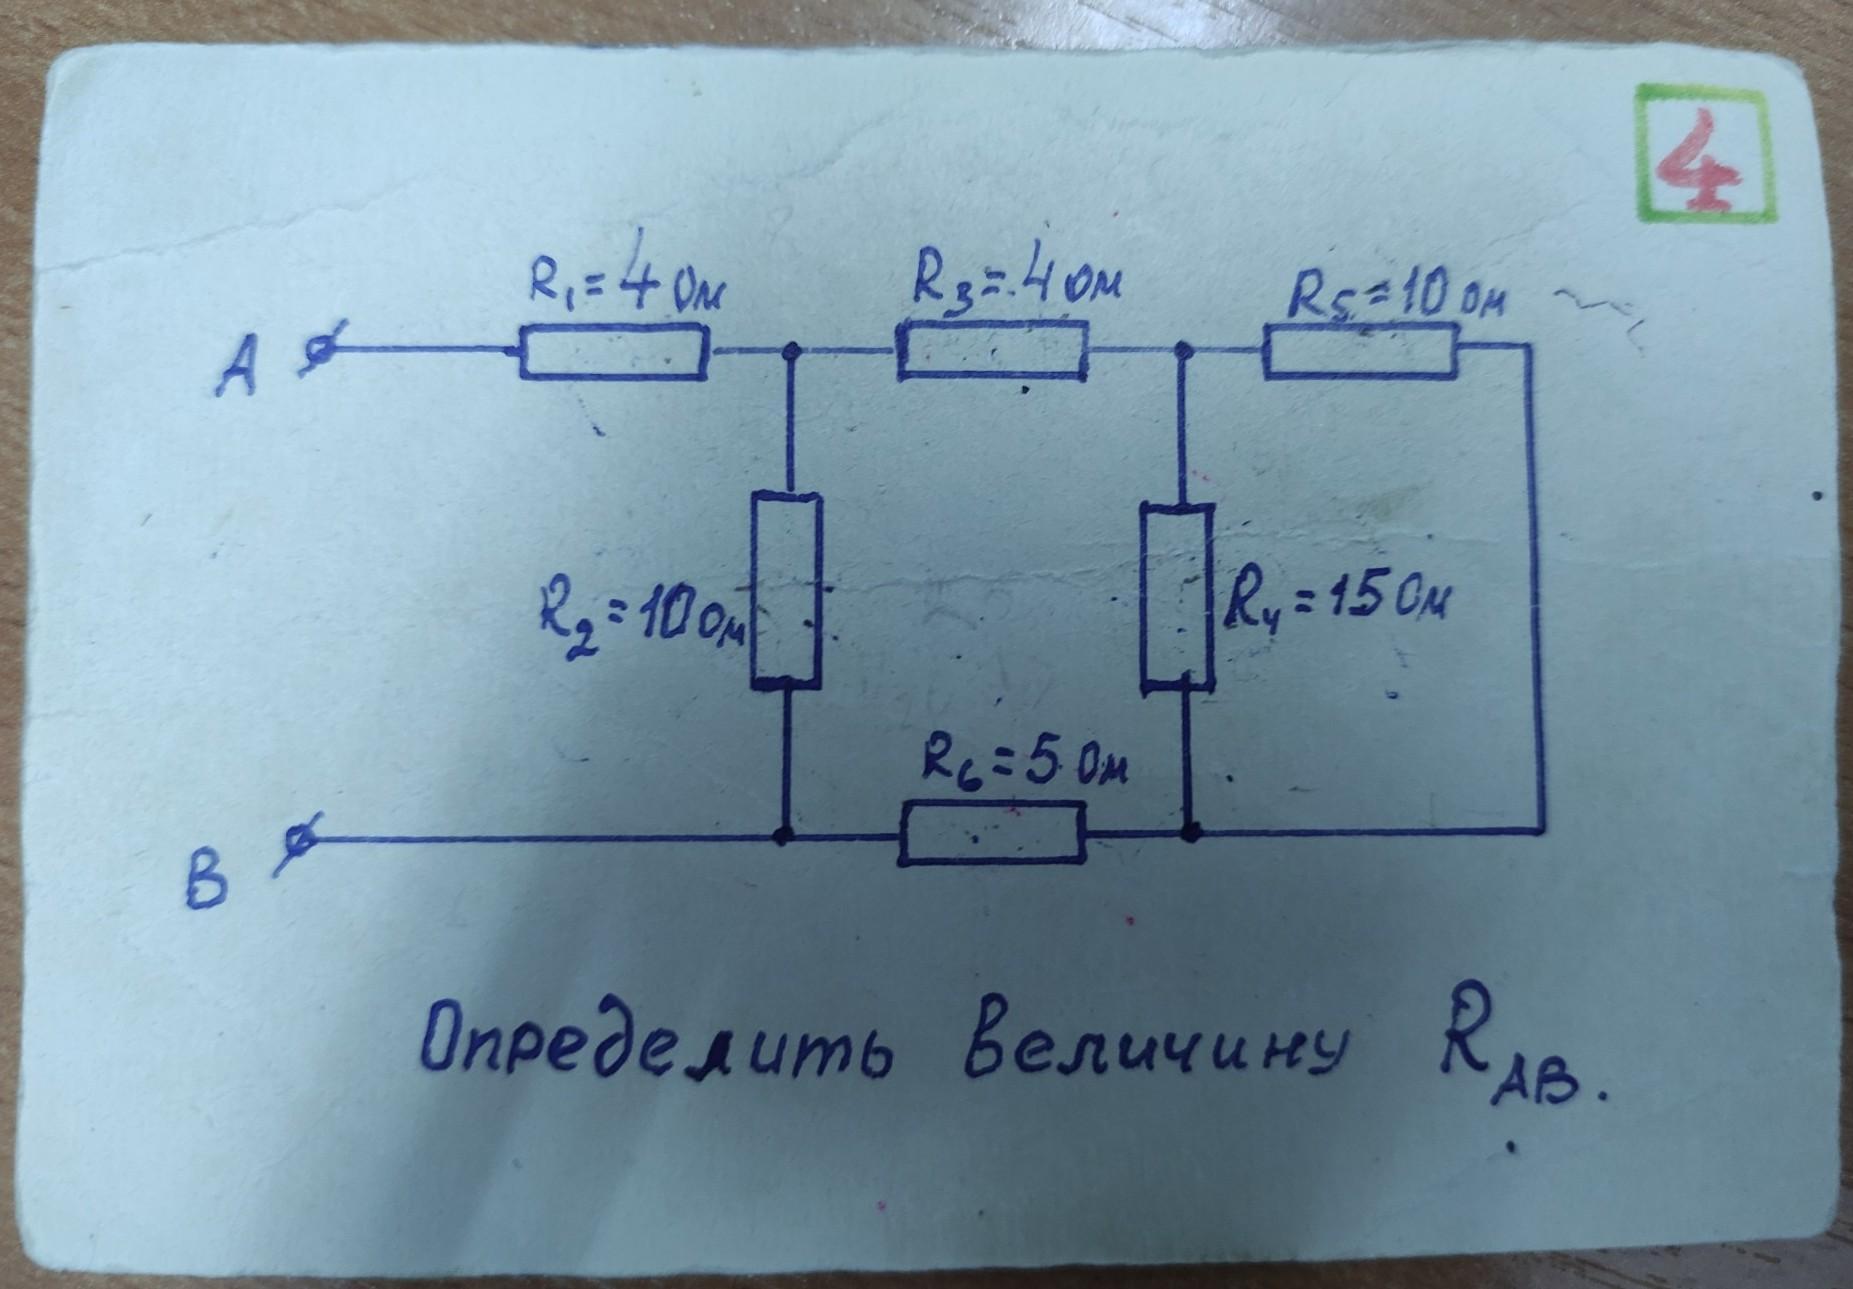 4
R₁=4 Ом
R₃=4 Ом
R₅=10 Ом
A
R₂=10 Ом
R₄=15 Ом
R₆=5 Ом
B
Определить величину R_AB.